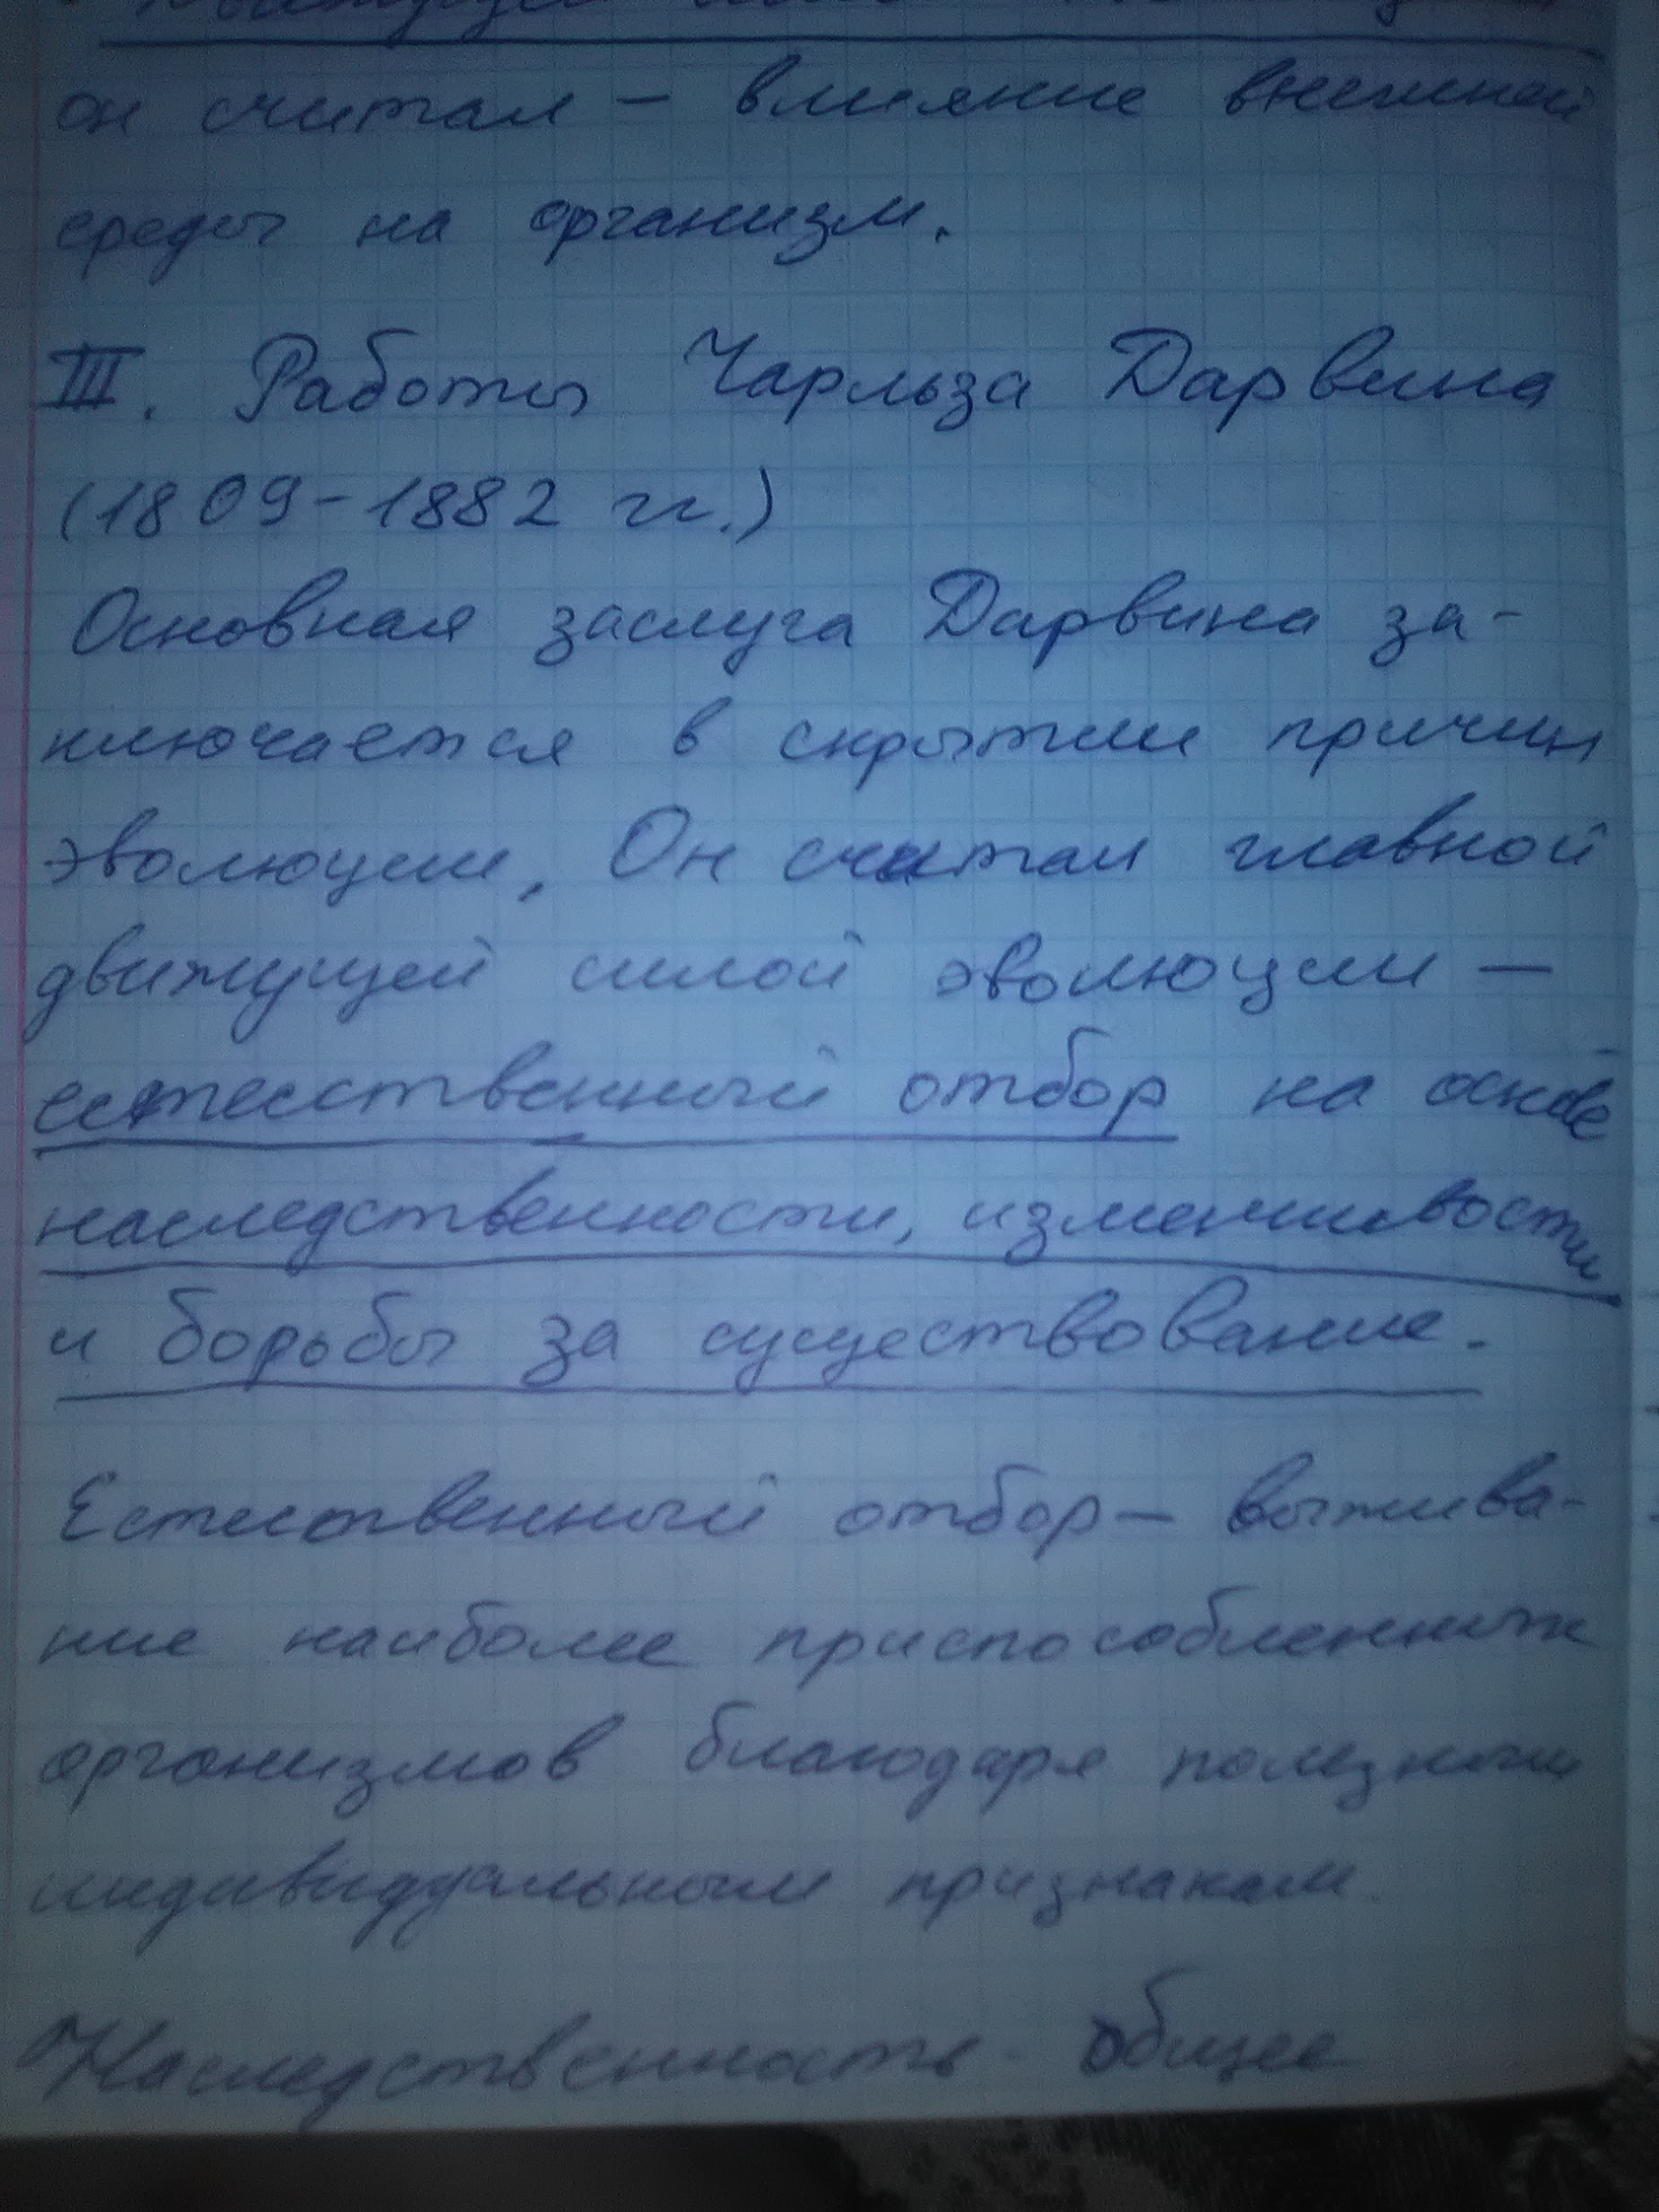 он считал - влияние внешней
среды на организм.
III. Работы Чарльза Дарвина
(1809-1882 гг.)
Основная заслуга Дарвина за-
ключается в скрытии причин
эволюции. Он считал главной
движущей силой эволюции —
естесственный отбор на основе
наследственности, изменчивости
и борьбы за существование.
Естественный отбор — выжива-
ние наиболее приспособленных
организмов благодаря полезным
индивидуальным признакам.
Наследственность - общее